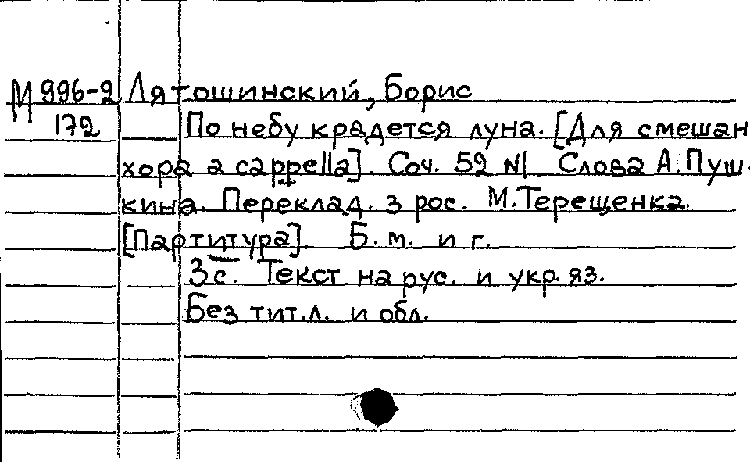 М 996-2 Лятошинский, Борис
172 По небу крадется луна. [Для смешан
хора a cappella]. Соч. 52 №1 Слова А. Пуш-
кина. Переклад. з рос. М. Терещенка.
[Партитура]. Б. м. и г.
3с. Текст на рус. и укр. яз.
Без тит. л. и обл.